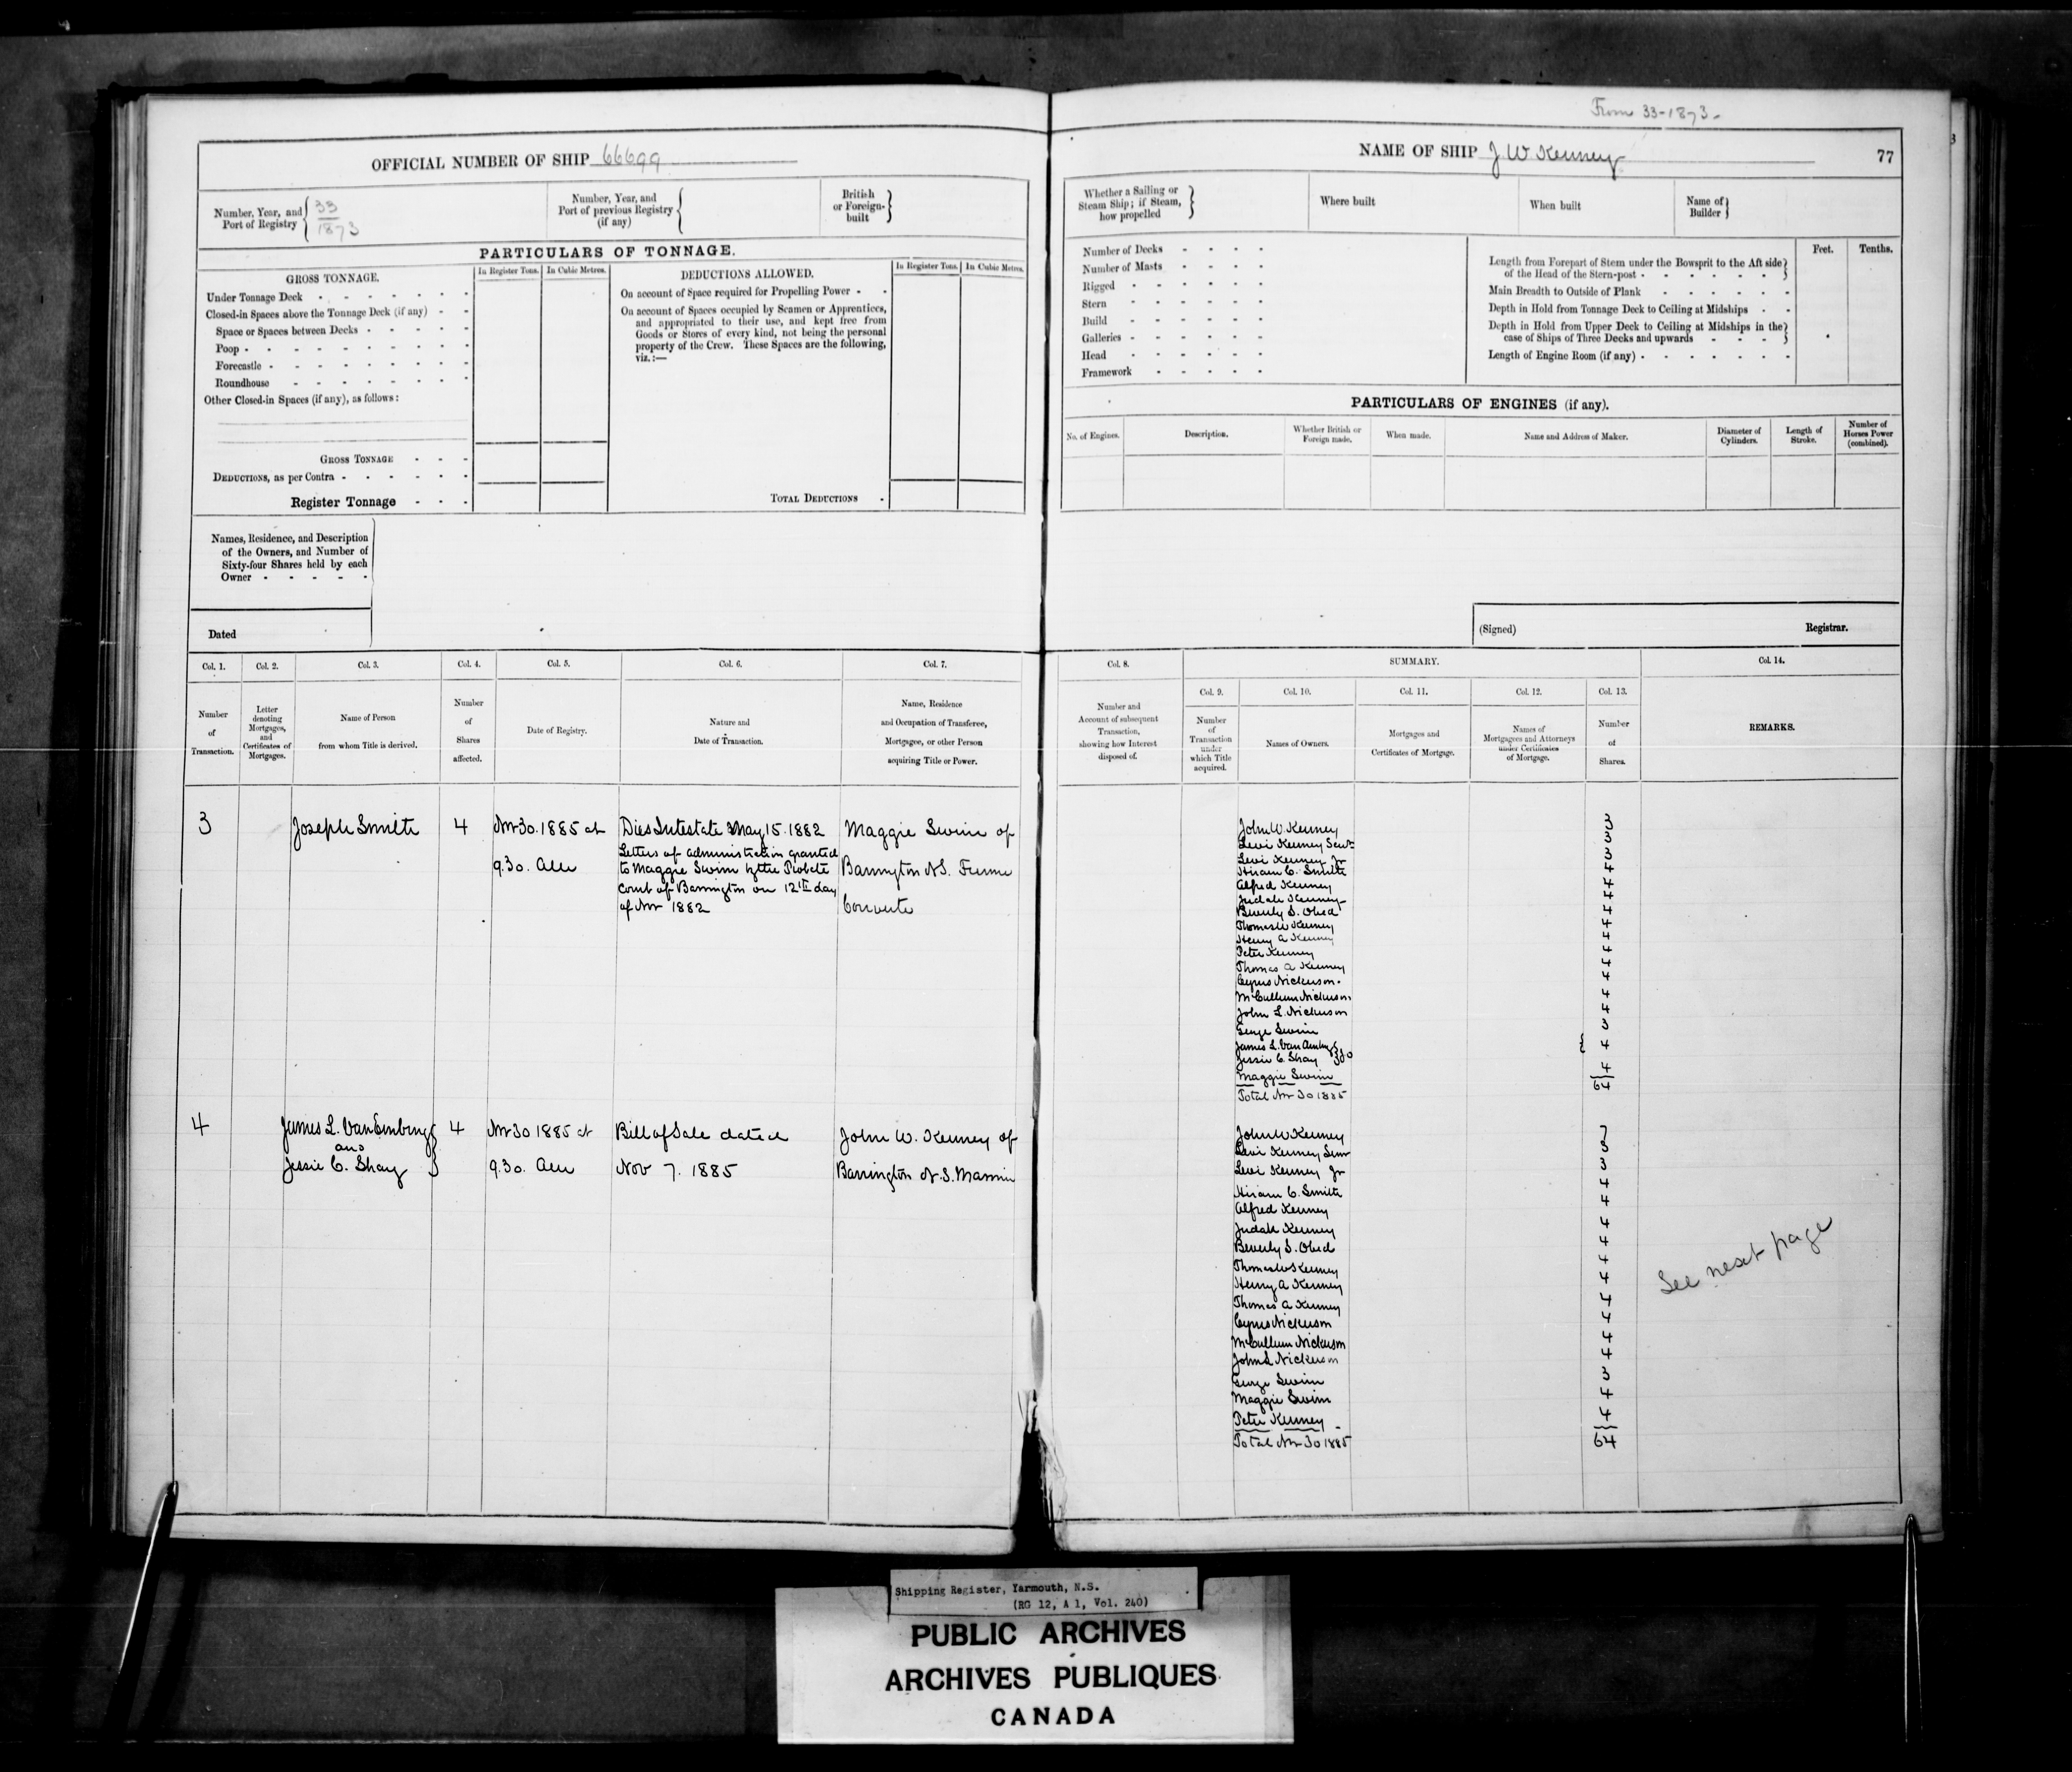 From 33-1873-
OFFICIAL NUMBER OF SHIP 66699
NAME OF SHIP J W Kenney
77
Number, Year, and
Port of Registry
33
1873
Number, Year, and
Port of previous Registry
(if any)
British
or Foreign-
built
Whether a Sailing or
Steam Ship; if Steam,
how propelled
Where built
When built
Name of
Builder
PARTICULARS OF TONNAGE.
GROSS TONNAGE.
In Register Tons.
In Cubic Metres.
DEDUCTIONS ALLOWED.
In Register Tons.
In Cubic Metres.
Under Tonnage Deck
Closed-in Spaces above the Tonnage Deck (if any)
Space or Spaces between Decks
Poop
Forecastle
Roundhouse
Other Closed-in Spaces (if any), as follows:
GROSS TONNAGE
DEDUCTIONS, as per Contra
Register Tonnage
On account of Space required for Propelling Power
On account of Spaces occupied by Seamen or Apprentices,
and appropriated to their use, and kept free from
Goods or Stores of every kind, not being the personal
property of the Crew. These Spaces are the following,
viz.:—
TOTAL DEDUCTIONS
Number of Decks
Number of Masts
Rigged
Stern
Build
Galleries
Head
Framework
Feet.
Tenths.
Length from Forepart of Stem under the Bowsprit to the Aft side
of the Head of the Stern-post
Main Breadth to Outside of Plank
Depth in Hold from Tonnage Deck to Ceiling at Midships
Depth in Hold from Upper Deck to Ceiling at Midships in the
case of Ships of Three Decks and upwards
Length of Engine Room (if any)
PARTICULARS OF ENGINES (if any).
No. of Engines.
Description.
Whether British or
Foreign made.
When made.
Name and Address of Maker.
Diameter of
Cylinders.
Length of
Stroke.
Number of
Horses Power
(combined).
Names, Residence, and Description
of the Owners, and Number of
Sixty-four Shares held by each
Owner
Dated
(Signed)
Registrar.
Col. 1.
Col. 2.
Col. 3.
Col. 4.
Col. 5.
Col. 6.
Col. 7.
Number
of
Transaction.
Letter
denoting
Mortgages,
and
Certificates of
Mortgages.
Name of Person
from whom Title is derived.
Number
of
Shares
affected.
Date of Registry.
Nature and
Date of Transaction.
Name, Residence
and Occupation of Transferee,
Mortgagee, or other Person
acquiring Title or Power.
Col. 8.
SUMMARY.
Col. 14.
Col. 9.
Col. 10.
Col. 11.
Col. 12.
Col. 13.
Number and
Account of subsequent
Transaction,
showing how Interest
disposed of.
Number
of
Transaction
under
which Title
acquired.
Names of Owners.
Mortgages and
Certificates of Mortgage.
Names of
Mortgagees and Attorneys
under Certificates
of Mortgage.
Number
of
Shares.
REMARKS.
3
Joseph Smith
4
Nov 30. 1885 at
9.30. am
Dies Intestate May 15. 1882
Letters of administration granted
to Maggie Swim by the Probate
Court of Barrington on 12th day
of Nov 1882
Maggie Swim of
Barrington N.S. Femme
Couverte
John W. Kenney 3
Levi Kenney Senr 3
Levi Kenney Jr 3
Hiram C. Smith 4
Alfred Kenney 4
Judah Kenney 4
Beverly S. Obed 4
Thomas W Kenney 4
Henry A Kenney 4
Peter Kenney 4
Thomas A Kenney 4
Cyrus Nickerson. 4
McCullum Nickerson. 4
John L. Nickerson 4
George Swim 3
James L. VanAmburg
Jessie C. Shay 4
Maggie Swim 4
Total Nov 30 1885 64
4
James L. VanEmburg
and
Jessie C. Shay
4
Nov 30 1885 at
9.30. am
Bill of Sale dated
Nov 7. 1885
John W. Kenney of
Barrington N.S. Marrin
John W Kenney 7
Levi Kenney Senr 3
Levi Kenney Jr 3
Hiram C. Smith 4
Alfred Kenney 4
Judah Kenney 4
Beverly S. Obed 4
Thomas W Kenney 4
Henry A Kenney 4
Thomas A Kenney 4
Cyrus Nickerson 4
McCullum Nickerson 4
John L Nickerson 4
George Swim 3
Maggie Swim 4
Peter Kenney 4
Total Nov 30 1885 64
See next page
Shipping Register, Yarmouth, N.S.
(RG 12, A 1, Vol. 240)
PUBLIC ARCHIVES
ARCHIVES PUBLIQUES
CANADA